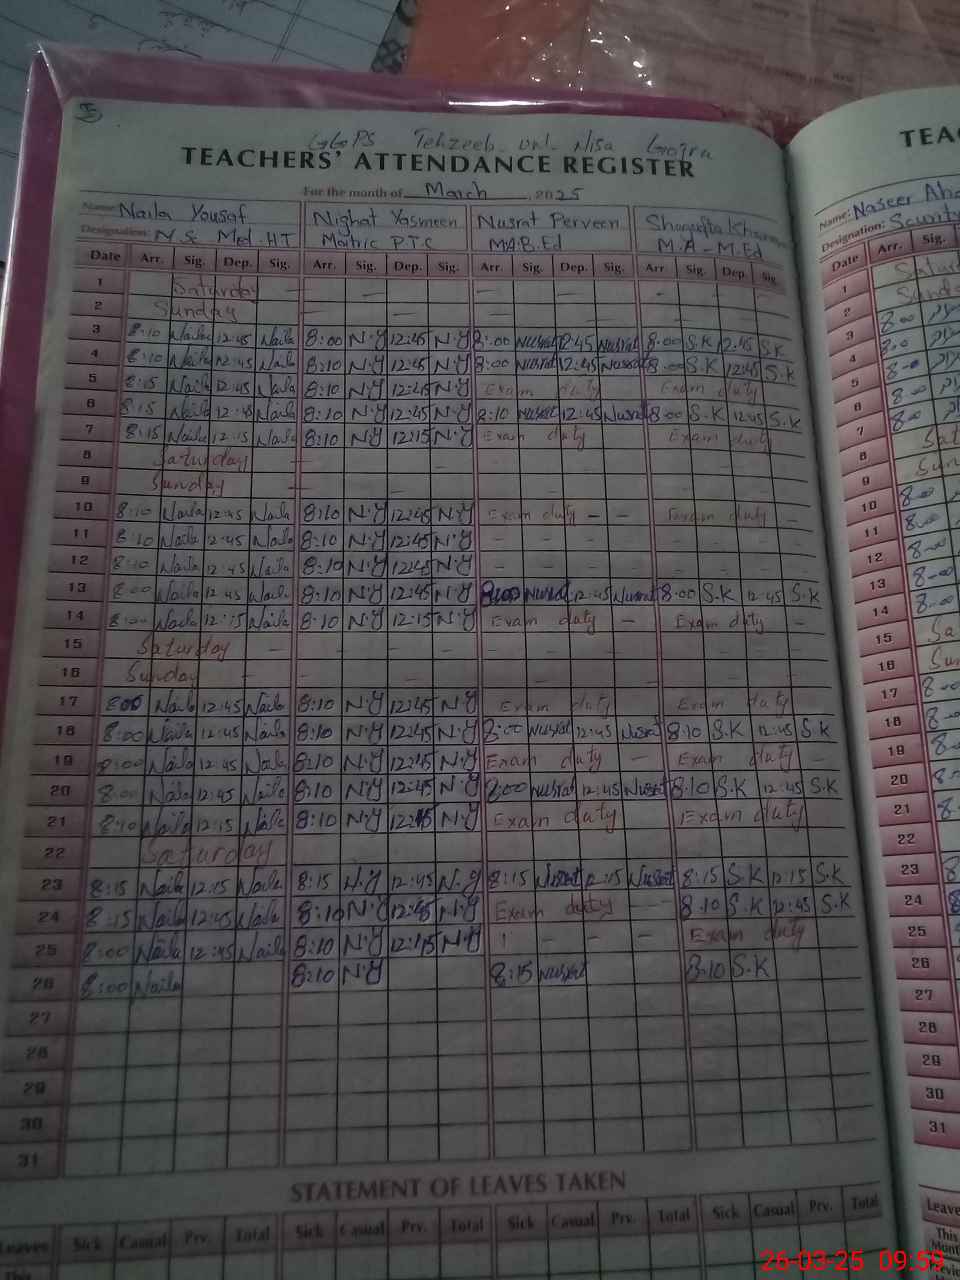 GGPS Tehzeeb-un-Nisa Gojra
TEACHERS' ATTENDANCE REGISTER
For the month of March, 2025
Name: Naila Yousaf Nighat Yasmeen Nusrat Perveen
Designation: M.Sc Med. HT Matric P.T.C M.A B.Ed M.A - M.Ed
Date Arr. Sig. Dep. Sig. Arr. Sig. Dep. Sig. Arr. Sig. Dep. Sig. Arr Sig. Dep. Sig.
1 Saturday
2 Sunday
3 8:10 Naila 12:45 Naila 8:00 N.Y 12:45 N.Y 8:00 Nusrat 12:45 Nusrat 8:00 S.K 12:45 S.K
4 8:10 Naila 12:45 Naila 8:10 N.Y 12:45 N.Y 8:00 Nusrat 12:45 Nusrat 8:00 S.K 12:45 S.K
5 8:15 Naila 12:45 Naila 8:10 N.Y 12:45 N.Y Exam duty Exam duty
6 8:15 Naila 12:45 Naila 8:10 N.Y 12:45 N.Y 8:10 Nusrat 12:45 Nusrat 8:00 S.K 12:45 S.K
7 8:15 Naila 12:15 Naila 8:10 N.Y 12:15 N.Y Exam duty Exam duty
8 Saturday
9 Sunday
10 8:10 Naila 12:45 Naila 8:10 N.Y 12:45 N.Y Exam duty - - Exam duty -
11 8:10 Naila 12:45 Naila 8:10 N.Y 12:45 N.Y - - - - - - - -
12 8:10 Naila 12:45 Naila 8:10 N.Y 12:45 N.Y - - - - - - - -
13 8:00 Naila 12:45 Naila 8:10 N.Y 12:45 N.Y 8:00 Nusrat 12:45 Nusrat 8:00 S.K 12:45 S.K
14 8:00 Naila 12:15 Naila 8:10 N.Y 12:15 N.Y Exam duty - Exam duty -
15 Saturday
16 Sunday
17 8:00 Naila 12:45 Naila 8:10 N.Y 12:45 N.Y Exam duty Exam duty
18 8:00 Naila 12:45 Naila 8:10 N.Y 12:45 N.Y 8:00 Nusrat 12:45 Nusrat 8:10 S.K 12:45 S K
19 8:00 Naila 12:45 Naila 8:10 N.Y N.Y Exam duty - Exam duty -
20 8:00 Naila 12:45 Naila 8:10 N.Y 12:45 N.Y 8:00 Nusrat 12:45 Nusrat 8:10 S.K 12:45 S.K
21 8:10 Naila 12:15 Naila 8:10 N.Y 12:15 N.Y Exam duty Exam duty
22 Saturday
23 8:15 Naila 12:15 Naila 8:15 N.Y 12:45 N.Y 8:15 Nusrat 12:15 Nusrat 8:15 S.K 12:15 S.K
24 8:15 Naila 12:45 Naila 8:10 N.Y 12:45 N.Y Exam duty - 8:10 S.K 12:45 S.K
25 8:00 Naila 12:45 Naila 8:10 N.Y N.Y - - - Exam duty
26 8:00 Naila 8:10 N.Y 8:15 Nusrat 8:10 S.K
27
28
29
30
31
STATEMENT OF LEAVES TAKEN
Leaves Sick Casual Prv. Total Sick Casual Prv. Total Sick Casual Prv. Total Sick Casual Prv. Total
This
TEAC
Name: Naseer Ah
Designation:
Date Arr. Sig.
1
2
3 8:00
4
5
6
7
8
9
10
11
12
13
14
15
16
17
18
19
20
21
22
23
24
25
26
27
28
29
30
31
Leave
This
Mont
26-03-25 09:59